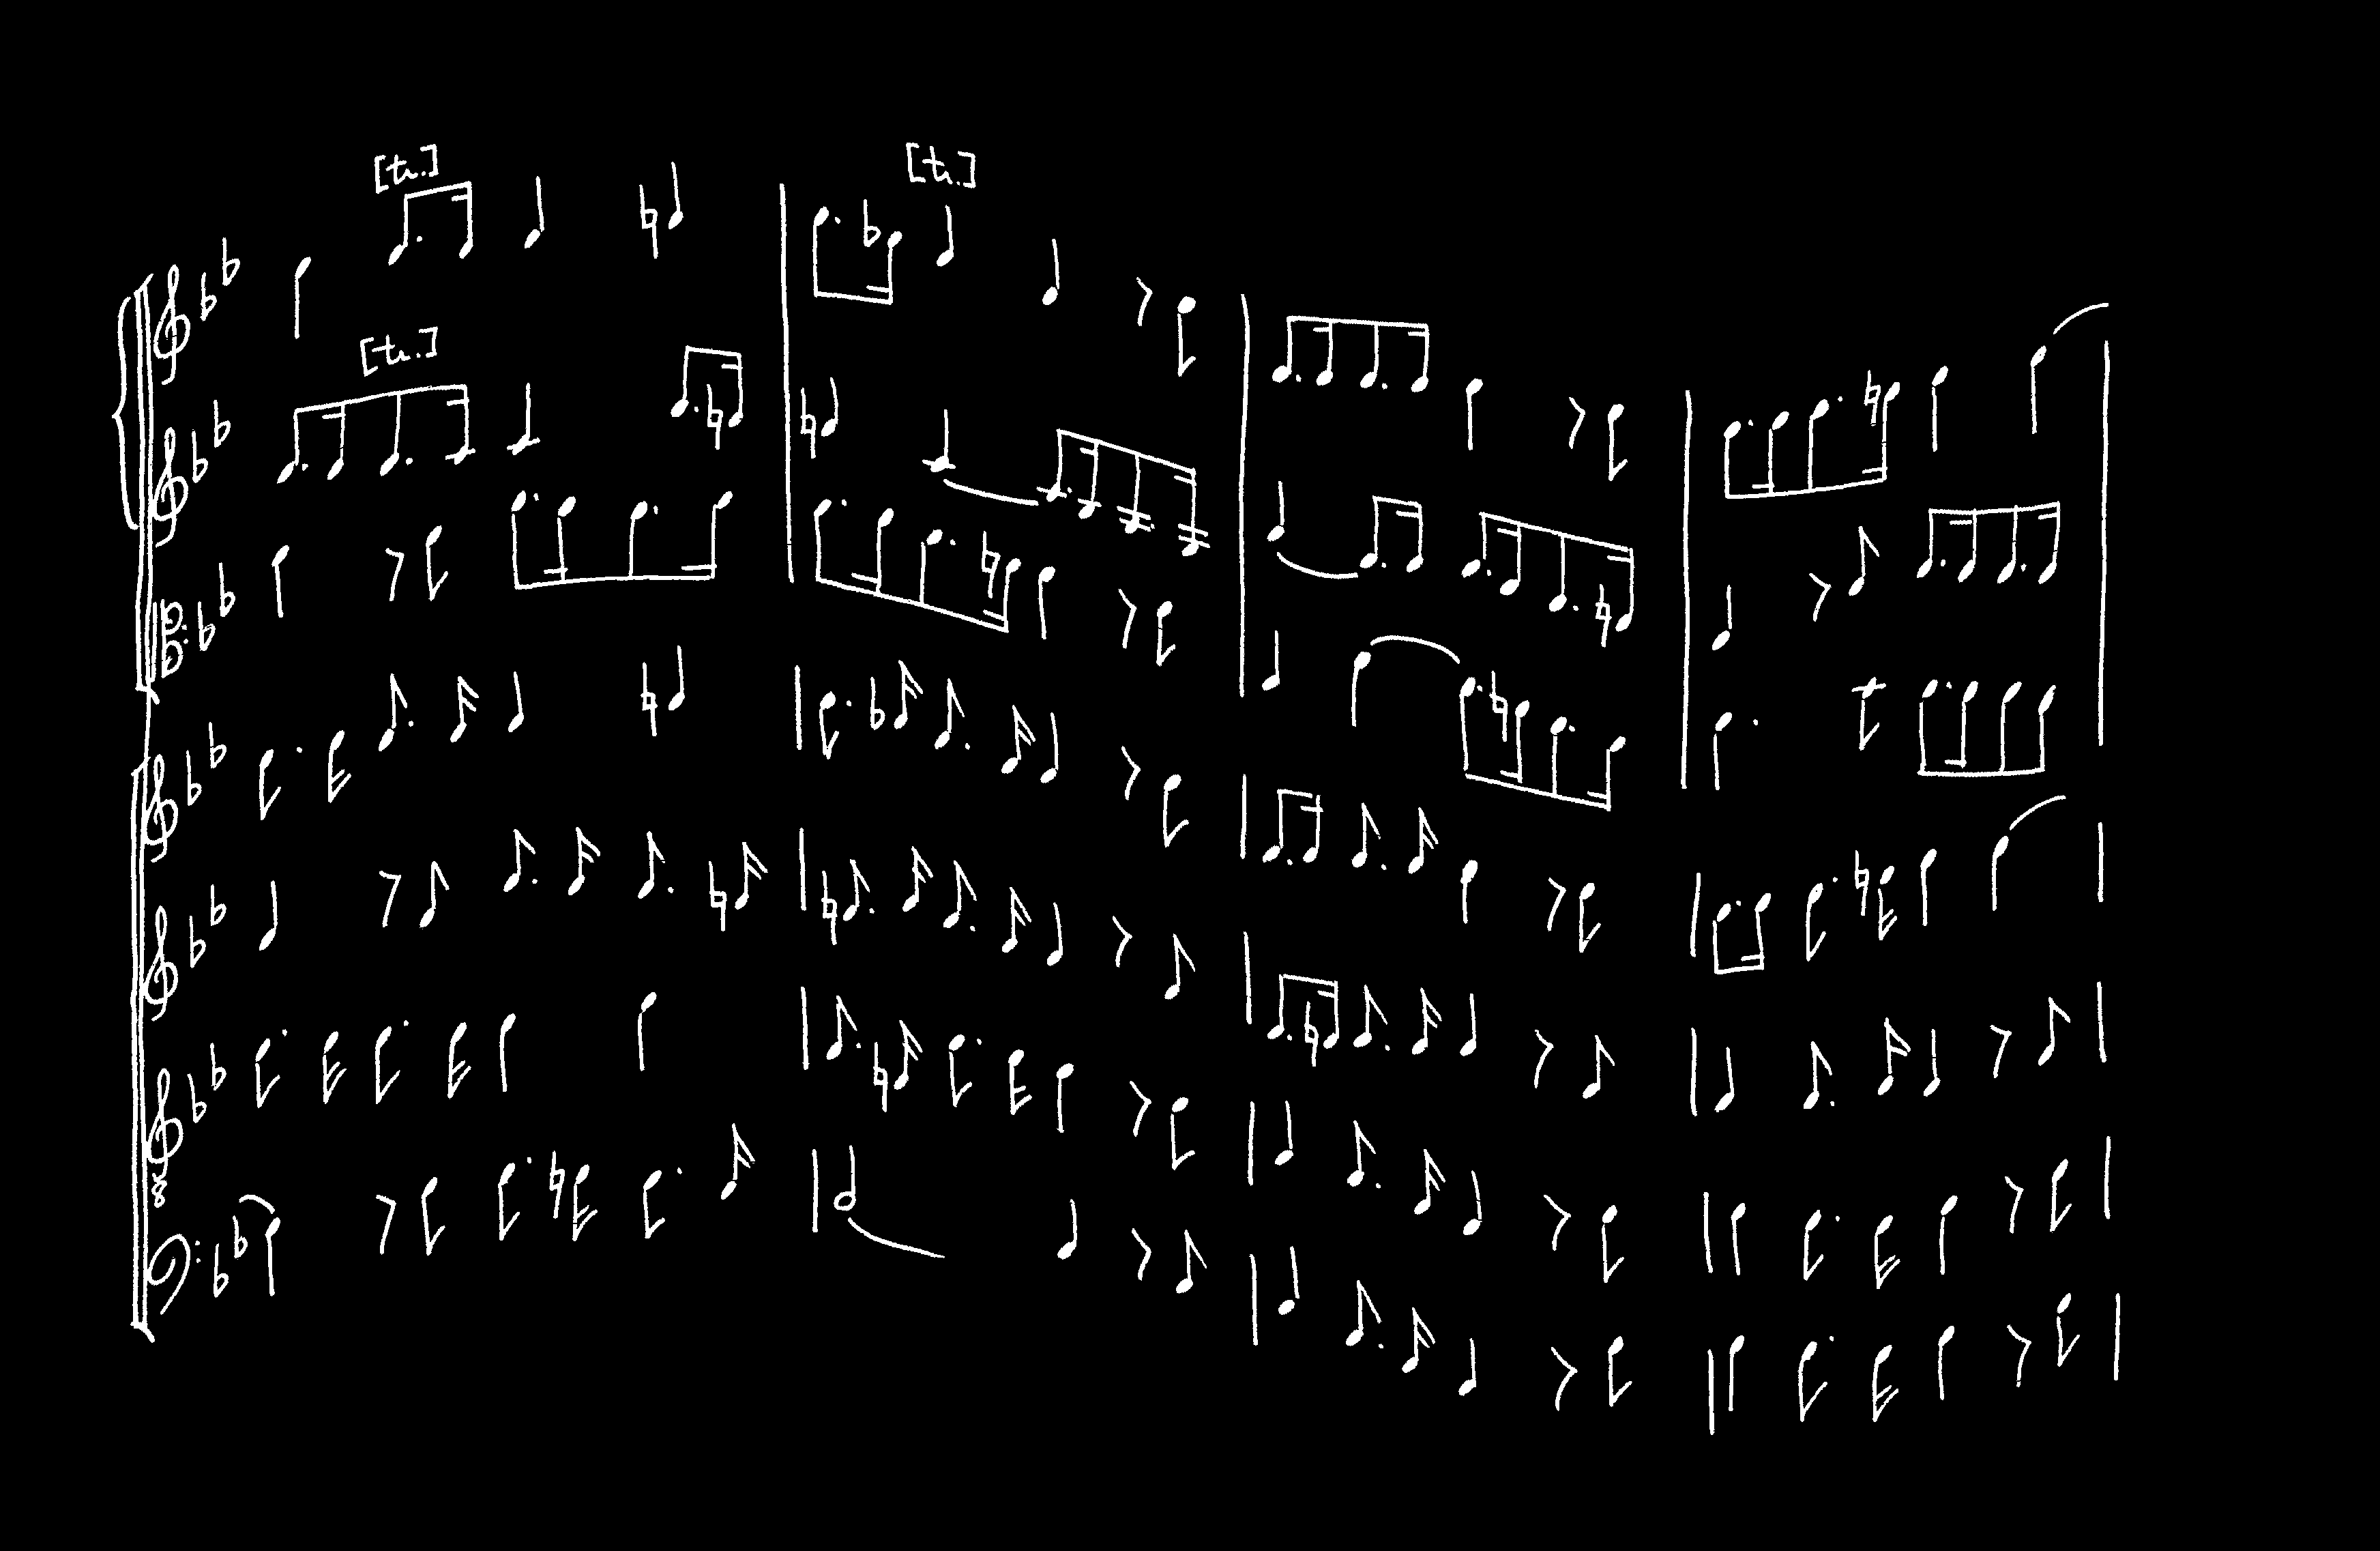 [tr.]
[tr.]
[tr.]
8